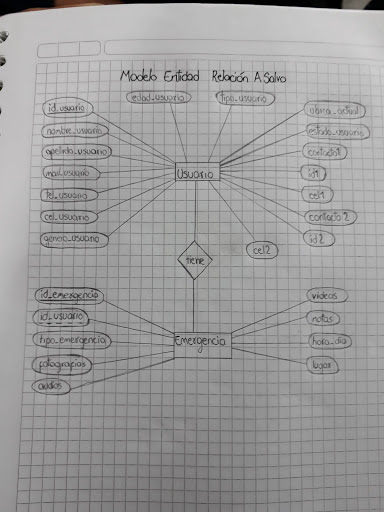 Modelo Entidad Relación A Salvo
edad_usuario
tipo_usuario
id_usuario
nombre_usuario
apellido_usuario
mail_usuario
tel_usuario
cel_usuario
genero_usuario
Usuario
estado_usuario
contacto1
id1
cel1
contacto2
id2
cel2
tiene
id_emergencia
id_usuario
tipo_emergencia
fotografias
audios
Emergencia
videos
notas
hora_dia
lugar